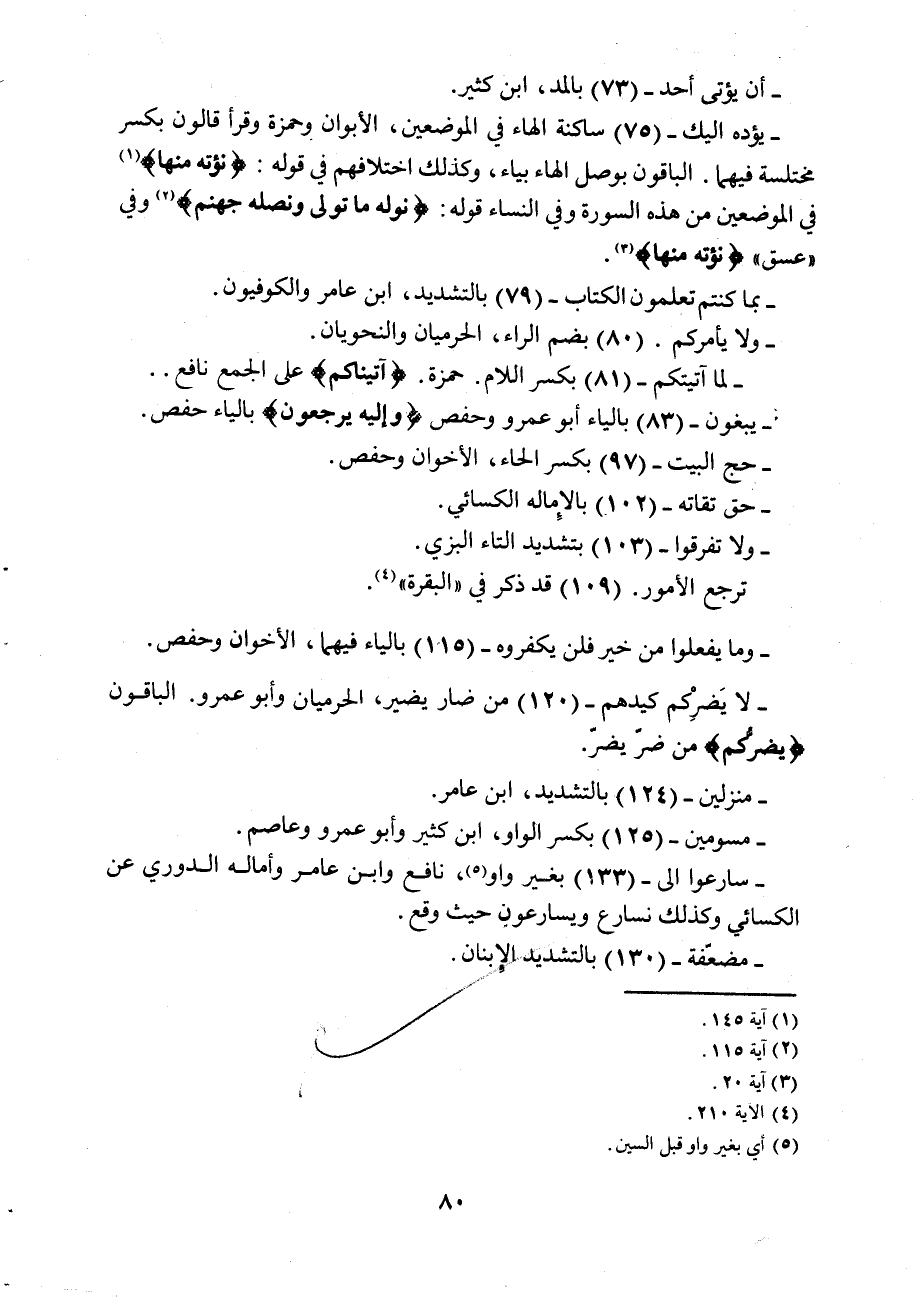 ـ أن يؤتى أحد ـ (٧٣) بالمد، ابن كثير.
ـ يؤده اليك ـ (٧٥) ساكنة الهاء في الموضعين، الأبوان وحمزة وقرأ قالون بكسر
مختلسة فيهما. الباقون بوصل الهاء بياء، وكذلك اختلافهم في قوله: ﴿نؤته منها﴾(١)
في الموضعين من هذه السورة وفي النساء قوله: ﴿نوله ما تولى ونصله جهنم﴾(٢) وفي
«عسق» ﴿نؤته منها﴾(٣).
ـ بما كنتم تعلمون الكتاب ـ (٧٩) بالتشديد، ابن عامر والكوفيون.
ـ ولا يأمركم . (٨٠) بضم الراء، الحرميان والنحويان.
ـ لما آتيتكم ـ (٨١) بكسر اللام. حمزة. ﴿آتيناكم﴾ على الجمع نافع . .
ـ يبغون ـ (٨٣) بالياء أبو عمرو وحفص ﴿وإليه يرجعون﴾ بالياء حفص.
ـ حج البيت ـ (٩٧) بكسر الحاء، الأخوان وحفص.
ـ حق تقاته ـ (١٠٢) بالإماله الكسائي.
ـ ولا تفرقوا ـ (١٠٣) بتشديد التاء البزي.
ترجع الأمور. (١٠٩) قد ذكر في «البقرة»(٤).
ـ وما يفعلوا من خير فلن يكفروه ـ (١١٥) بالياء فيهما، الأخوان وحفص.
ـ لا يَضِرْكم كيدهم ـ (١٢٠) من ضار يضير، الحرميان وأبو عمرو. الباقون
﴿يضرُّكم﴾ من ضرّ يضرّ.
ـ منزلين ـ (١٢٤) بالتشديد، ابن عامر.
ـ مسومين ـ (١٢٥) بكسر الواو، ابن كثير وأبو عمرو وعاصم.
ـ سارعوا الى ـ (١٣٣) بغير واو(٥)، نافع وابن عامر وأماله الدوري عن
الكسائي وكذلك نسارع ويسارعون حيث وقع.
ـ مضعّفة ـ (١٣٠) بالتشديد الإبنان.
(١) آية ١٤٥.
(٢) آية ١١٥.
(٣) آية ٢٠.
(٤) الآية ٢١٠.
(٥) أي بغير واو قبل السين.
٨٠